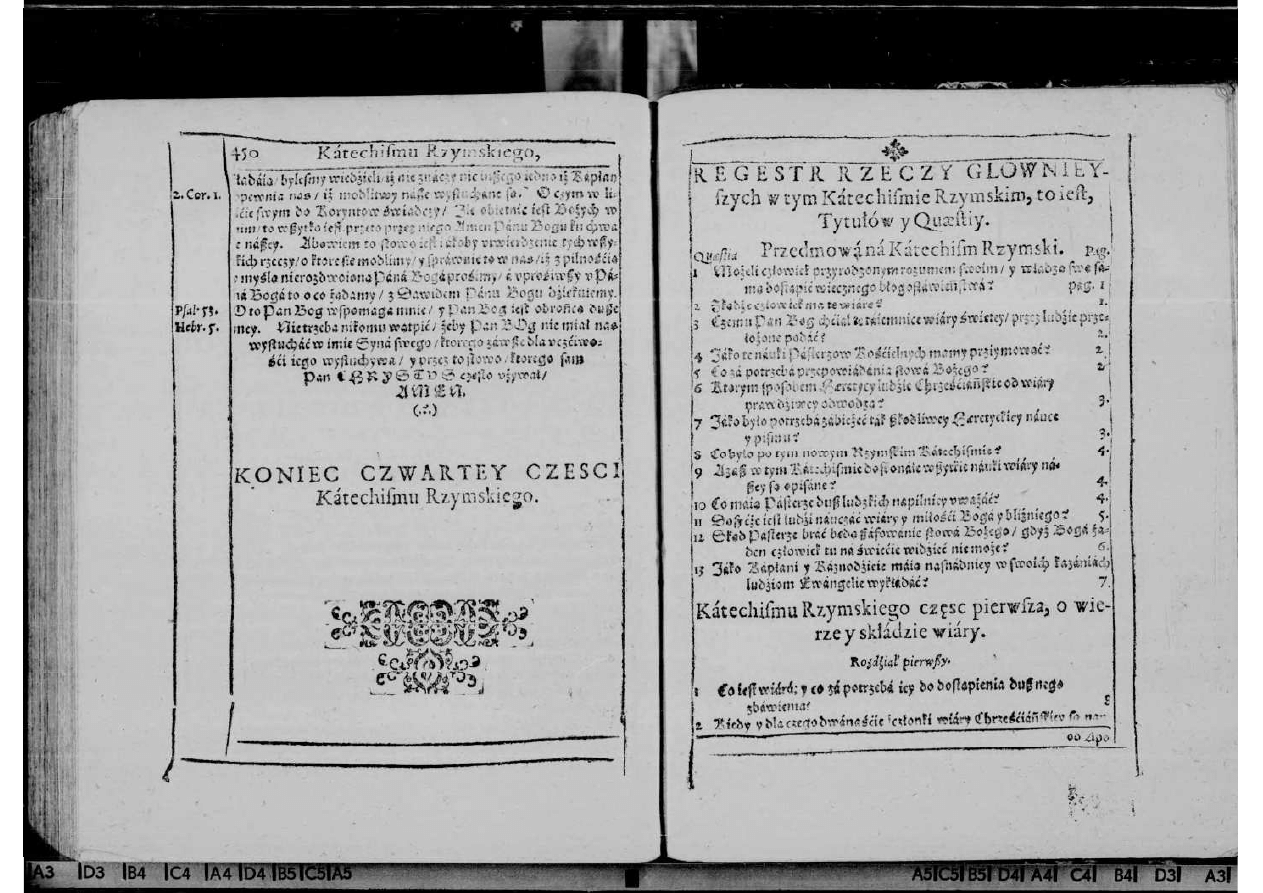 450 Kátechiſmu Rzymskiego,
kładáią/ bylesmy wiedzieli/ iż nie znáczy nic inßego iedno iż Kápłan
vpewnia nas/ iż modlitwy náße wysłucháne są. O czym w li-
2. Cor. 1.
śćie swym do Koryntow świadczy/ Ile obietnic iest Bożych w
nim/ to wßytko iest, przeto przez niego Amen Pánu Bogu ku chwa
e náßey. Abowiem to słowo iest iákoby vtwierdzenie tych wßy-
kich rzeczy/ o ktore się modlimy/ y spráwuie to w nas/ iż z pilnośćią
myślą nierozdwoioną Páná Bogá prośimy/ á vprośiwßy v Pá-
ná Bogá to o co żądamy/ z Dawidem Pánu Bogu dźiękuiemy.
Pſal. 53.
O to Pan Bog wspomaga mnie/ y Pan Bog iest obrońcá duße
Hebr. 5.
mey. Nie trzebá nikomu wątpić/ żeby Pan BOg nie miał nas
wysłucháć w imie Syná swego/ ktorego záwße dla vczćiwo-
śći iego wysłuchywa/ y przez to słowo/ ktorego sam
Pan CHRYSTUS często vżywał/
AMEN.
(.?.)
KONIEC CZWARTEY CZESCI
Kátechiſmu Rzymskiego.
REGESTR RZECZY GLOWNIEY-
ſzych w tym Kátechiſmie Rzymskim, to ieſt,
Tytułów y Quæſtiy.
Przedmowá ná Kátechiſm Rzymski. Pag.
Quæſtia
1 Możeli człowiek przyrodzonym rozumem swoim/ y władzą swą sá-
má dostąpić wiecznego błogosłáwieństwá? pag. 1
2 Skądże człowiek ma tę wiárę? 1.
3 Czemu Pan Bog chćiał tę táiemnicę wiáry świętey/ przez ludźie prze-
łożone podáć? 2.
4 Jáko te náuki Pásterzow Kośćielnych mamy przyimowáć? 2
5 Co zá potrzebá przepowiádánia słowá Bożego? 2
6 Ktorym sposobem Hæretycy ludźie Chrześćiáńskie od wiáry
prawdźiwey odwodzą? 3.
7 Jáko było potrzebá zábieżeć ták ßkodliwey Hæretyckiey náuce
y pismu? 3.
8 Co było po tym nowym Rzymskim Kátechismie? 4.
9 Azaß w tym Kátechismie doskonále wßytkie náuki wiáry ná-
ßey są opisáne? 4.
10 Co máią Pásterze duß ludzkich napilniey vważáć? 4.
11 Dosyć że iest ludźi náuczáć wiáry y miłośći Bogá y bliźniego? 5.
12 Skąd Pásterze bráć będą ßáfowánie słowá Bożego/ gdyż Bogá ża-
den człowiek tu ná świećie widźieć nie może? 6.
13 Jáko Kápłani y Káznodźieie máią nasnádniey w swoich kazániách
ludźiom Ewángelie wykłádáć? 7.
Kátechiſmu Rzymskiego częsc pierwſza, o wie-
rze y skłádzie wiáry.
Rozdźiał pierwßy.
1 Co iest wiárá; y co zá potrzebá iey do dostąpienia dußnego
zbáwienia? 8
2 Kiedy y dla czego dwánaśćie członki wiáry Chrześćiáńskiey są naz
oo Apo
A3 D3 B4 C4 A4 D4 B5 C5 A5
A5 C5 B5 D4 A4 C4 B4 D3 A3